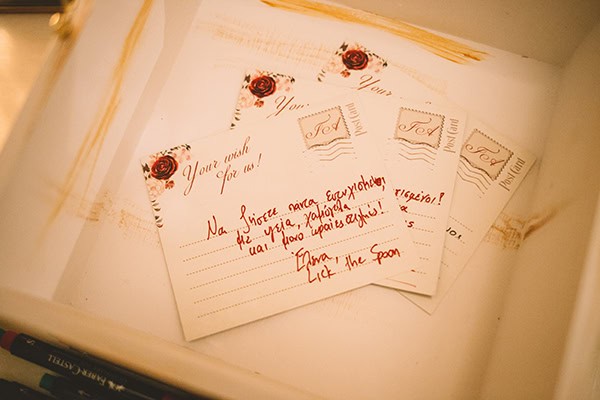 Your wish
for us!
ΤℓΑ
Post Card
Να ζήσετε πάντα ευτυχισμένοι,
με υγεία, χαμόγελα
και μόνο ωραίες στιγμές!
Έλενα,
Lick the Spoon
Your
Post Card
τισμένοι!
Your
Post Card
FABER-CASTELL